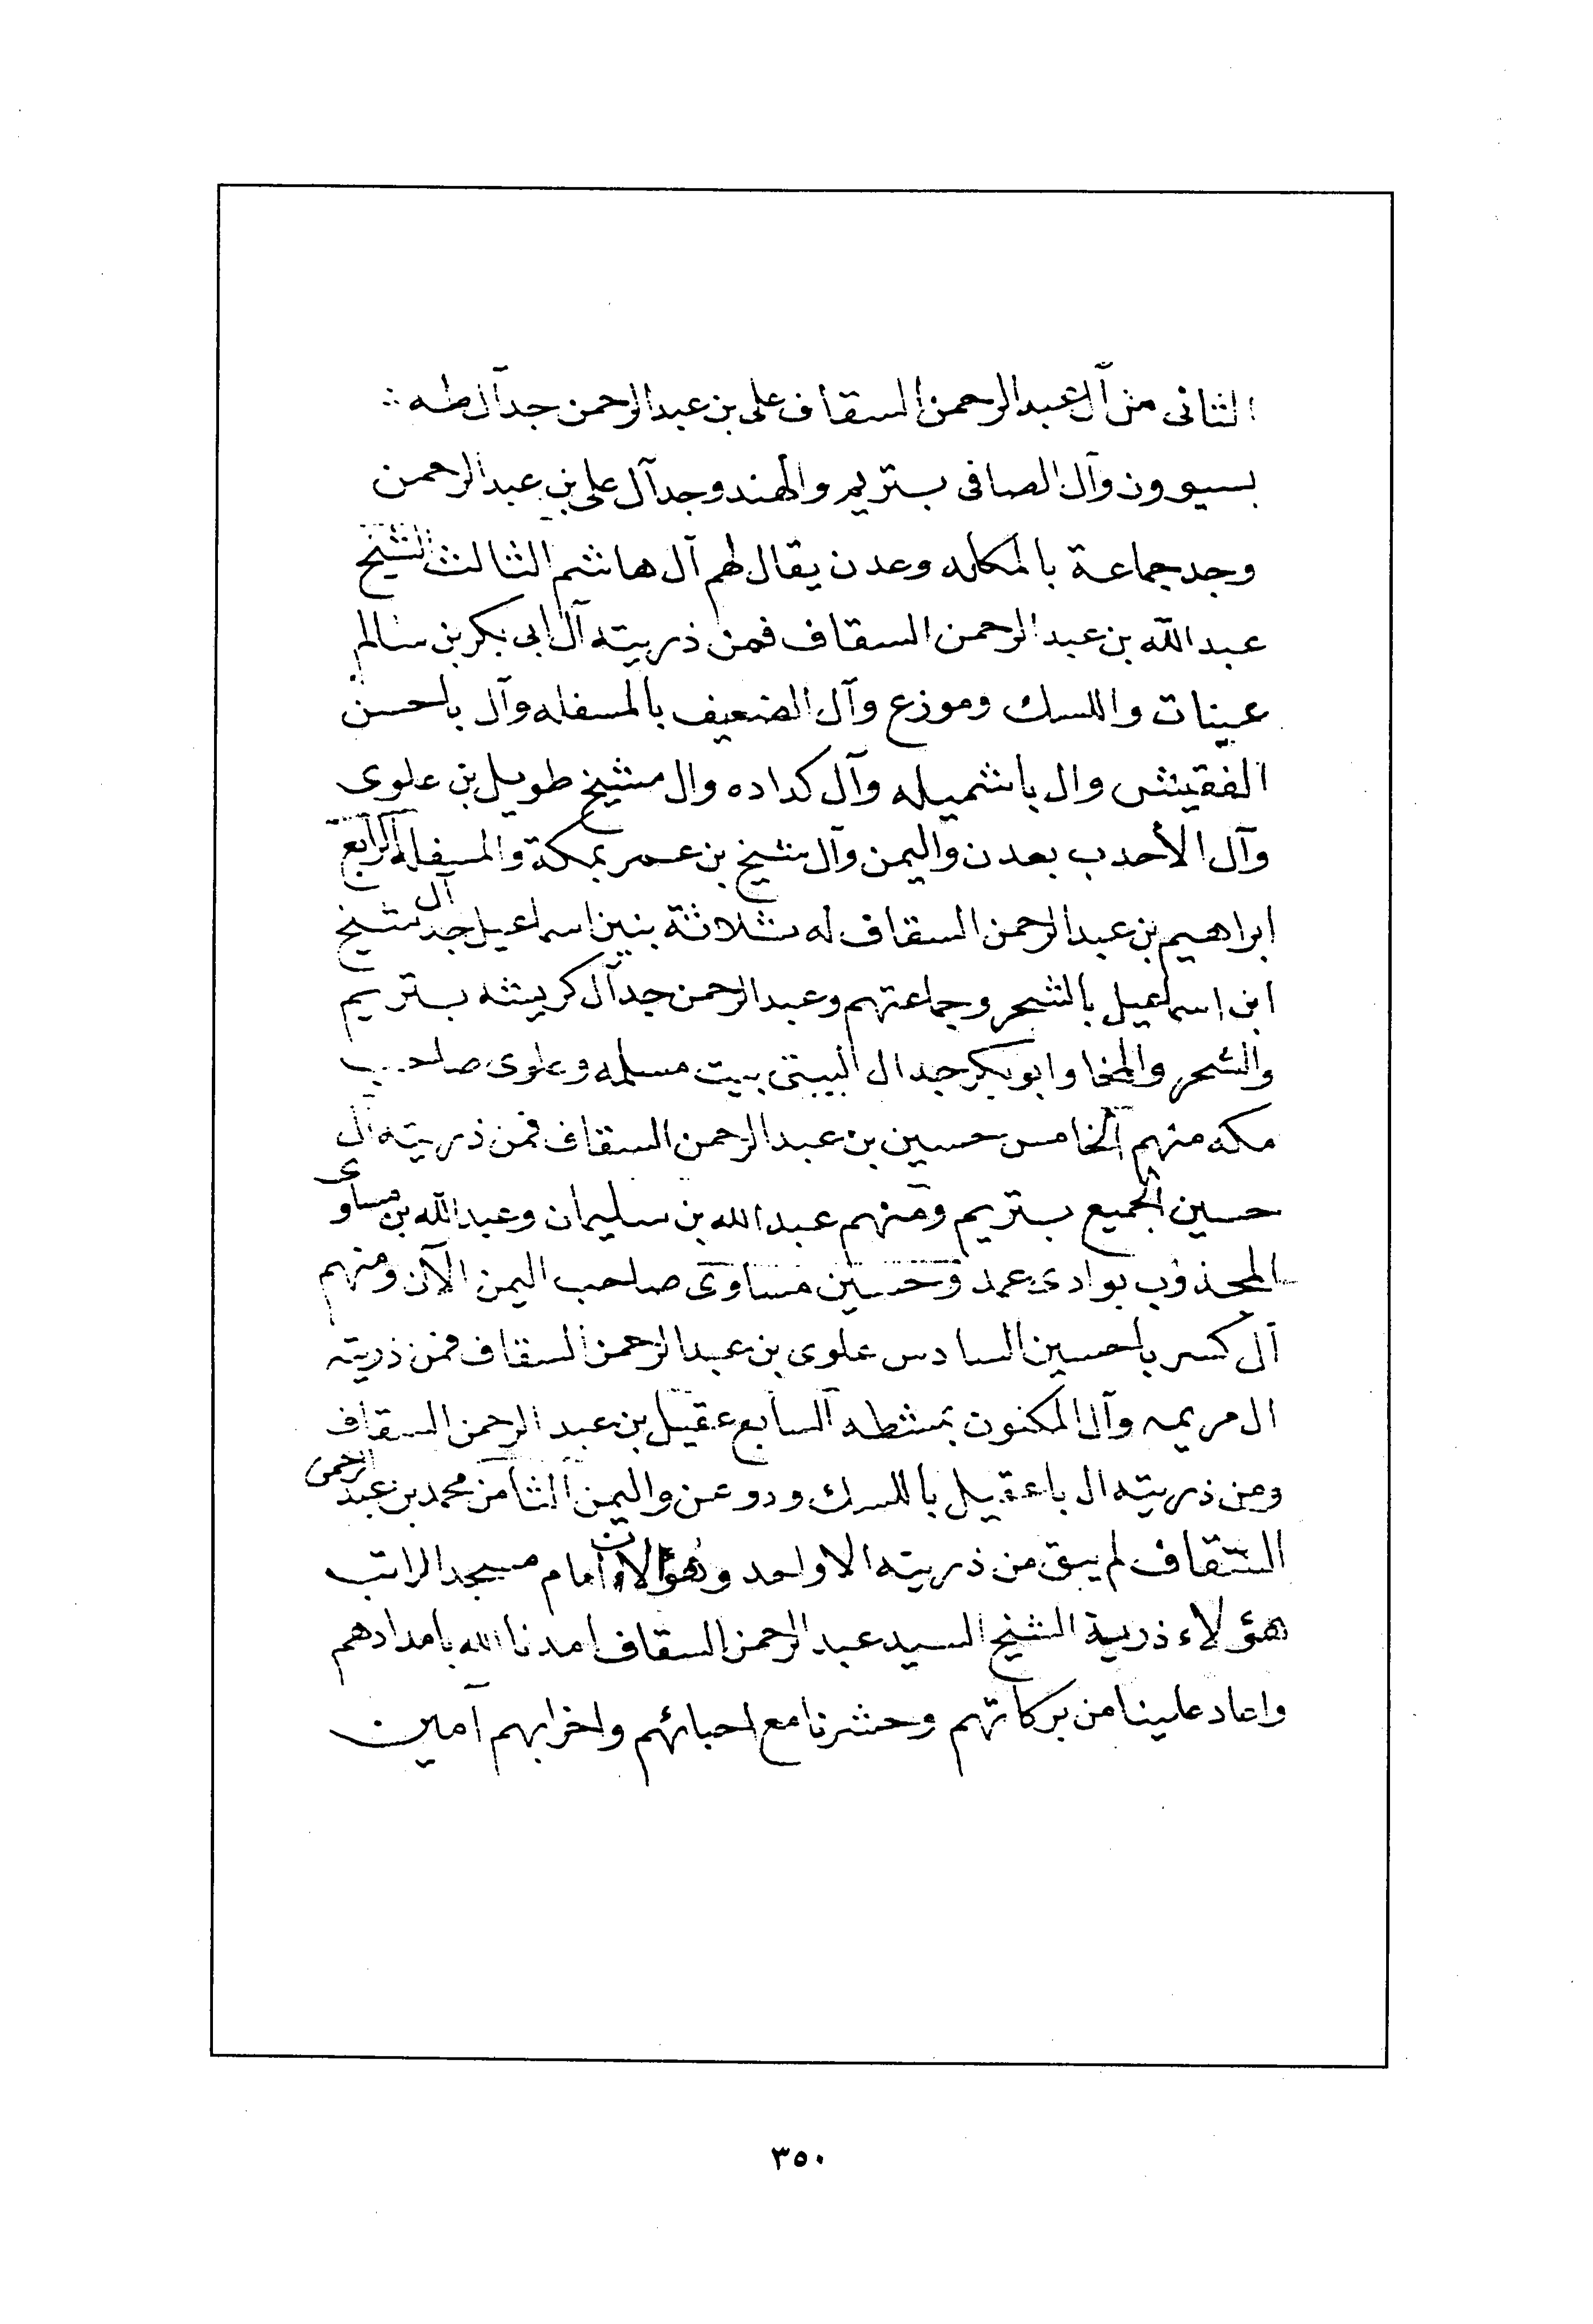 الثاني من آل عبدالرحمن السقاف علي بن عبدالرحمن جد آل طه
بسيوون وآل الصافي بتريم والهند وجد آل علي بن عبدالرحمن
وجد جماعة بالمكله وعدن يقال لهم آل هاشم الثالث الشيخ
عبدالله بن عبدالرحمن السقاف فمن ذريته آل ابي بكر بن سالم
عينات واللسك وموزع وآل الضعيف بالمسفله وآل باحسن
الفقيشى وال باشميله وآل كداده وال مشيخ طويل بن علوى
وآل الأحدب بعدن واليمن وآل شيخ بن عمر بمكة والمسفله الرابع
ابراهيم بن عبدالرحمن السقاف له ثلاثة بنين اسماعيل جد آل شيخ
ابن اسماعيل بالشحر وجماعتهم وعبدالرحمن جد آل كريشه بتريم
والشحر والمخا وابوبكر جد ال البيتى ببيت مسلمه وعلوى صاحب
مكه منهم الخامس حسين بن عبدالرحمن السقاف فمن ذريته آل
حسين الجميع بتريم ومنهم عبدالله بن سليمان وعبدالله بن مساوى
المجذوب بوادى عمد وحسين مساوى صاحب اليمن الآن ومنهم
آل كسر باحسين السادس علوى بن عبدالرحمن السقاف فمن ذريته
ال مريمه وآل المكنون بمشطه السابع عقيل بن عبد الرحمن السقاف
ومن ذريته ال باعقيل باللسك ودوعن واليمن الثامن محمد بن عبد الرحمن
السقاف لم يبق من ذريته الا واحد وهو الان امام مسجد الراتب
هؤلاء ذرية الشيخ السيد عبدالرحمن السقاف امدنا الله بامدادهم
واعاد علينا من بركاتهم وحشرنا مع احبائهم واحزابهم آمين
٣٥٠